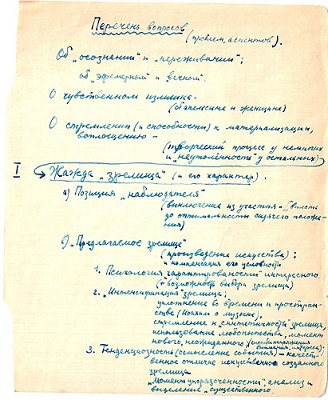 Перечень вопросов
(проблем, аспектов).
Об "осознании" и "переживании";
об "эфемерном" и вечном.
О чувственном излишке –
(об апельсине и женщине)
О стремлении (и способности) к материализации,
воплощению –
(творческий процесс у немногих
и "неутолённость" у остальных)
I Жажда "зрелища" (и его характер).
а) Позиция "наблюдателя"
(выключение из участия – (вплоть
до оптимальности сидячего положе-
ния)
"Предлагаемое зрелище"
(произведение искусства);
+ компенсация его условности
1. Психология гарантированности интересного
(+ возможность выбора зрелища)
2. "Интенсификация" зрелища;
уплотнение во времени и простран-
стве (Новалис о музыке),
стремление к синтетичности зрелища,
использование любопытства, момента
нового, неожиданного
3. Тенденциозность (осмысление события) – качест-
венное отличие искусственно созданного
зрелища
"Момент упорядоченности", анализ и
выделение "существенного".